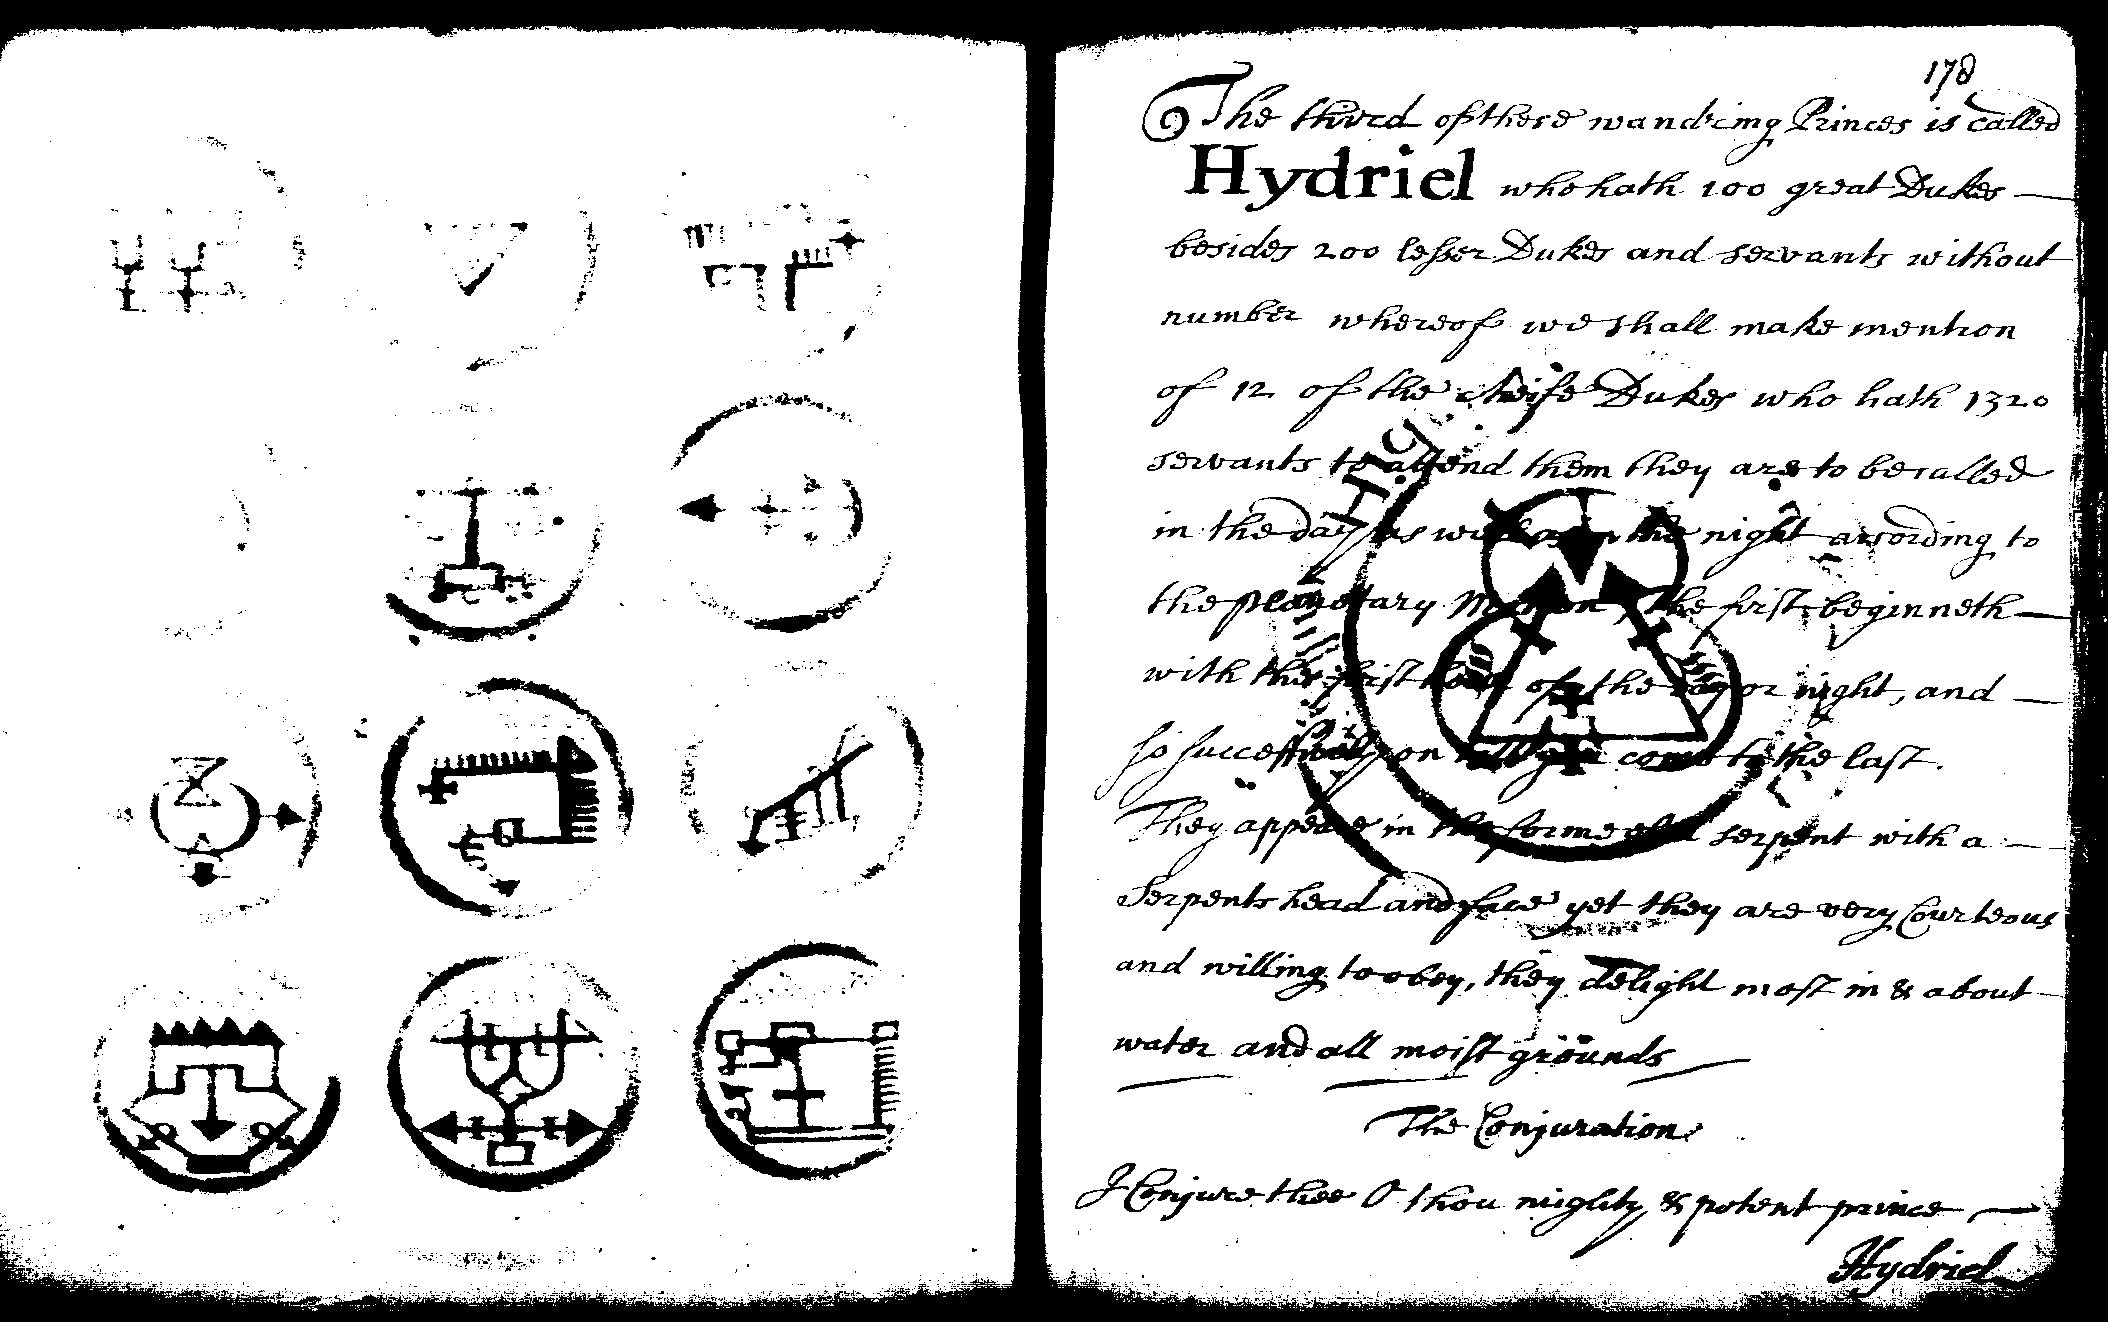 178
The third of these wandring Princes is called
Hydriel who hath 100 great Dukes
besides 200 lesser Dukes and servants without
number whereof we shall make mention
of 12 of the cheife Dukes who hath 1320
servants to attend them they are to be called
in the day as well as in the night according to
the planetary Motion, the first beginneth
with the first hour of the day or night, and
so successively on till you come to the last.
They appeare in the forme of a serpent with a
Serpents head and face yet they are very Courteous
and willing to obey, they delight most in & about
water and all moist grounds
The Conjuration
I Conjure thee O thou mighty & potent prince
Hydriel